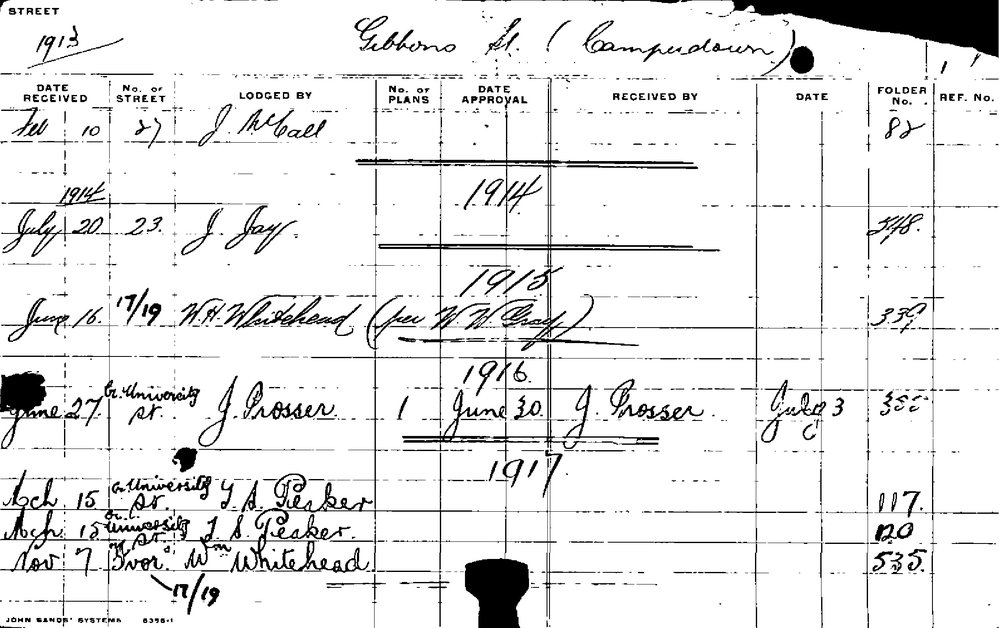 STREET
1913 Gibbons St. (Camperdown)
DATE RECEIVED No. OF STREET LODGED BY No. OF PLANS DATE APPROVAL RECEIVED BY DATE FOLDER No. REF. No.
Feb 10 27 J. McCall 82
1914 1914
July 20 23. J. Jay. 348.
1915
June 16 17/19 W.H. Whitehead (per W. W. Gray) 339
1916.
June 27 Cr. University St. J. Prosser. 1 June 30. J. Prosser. July 3
1917
Mch. 15 Cr. University St. T. S. Peaker 117.
Mch. 15 Cr. University St. T. S. Peaker. 120
Nov 7 "Ivor" Wm Whitehead 535.
17/19
JOHN SANDS' SYSTEMS 6396-1